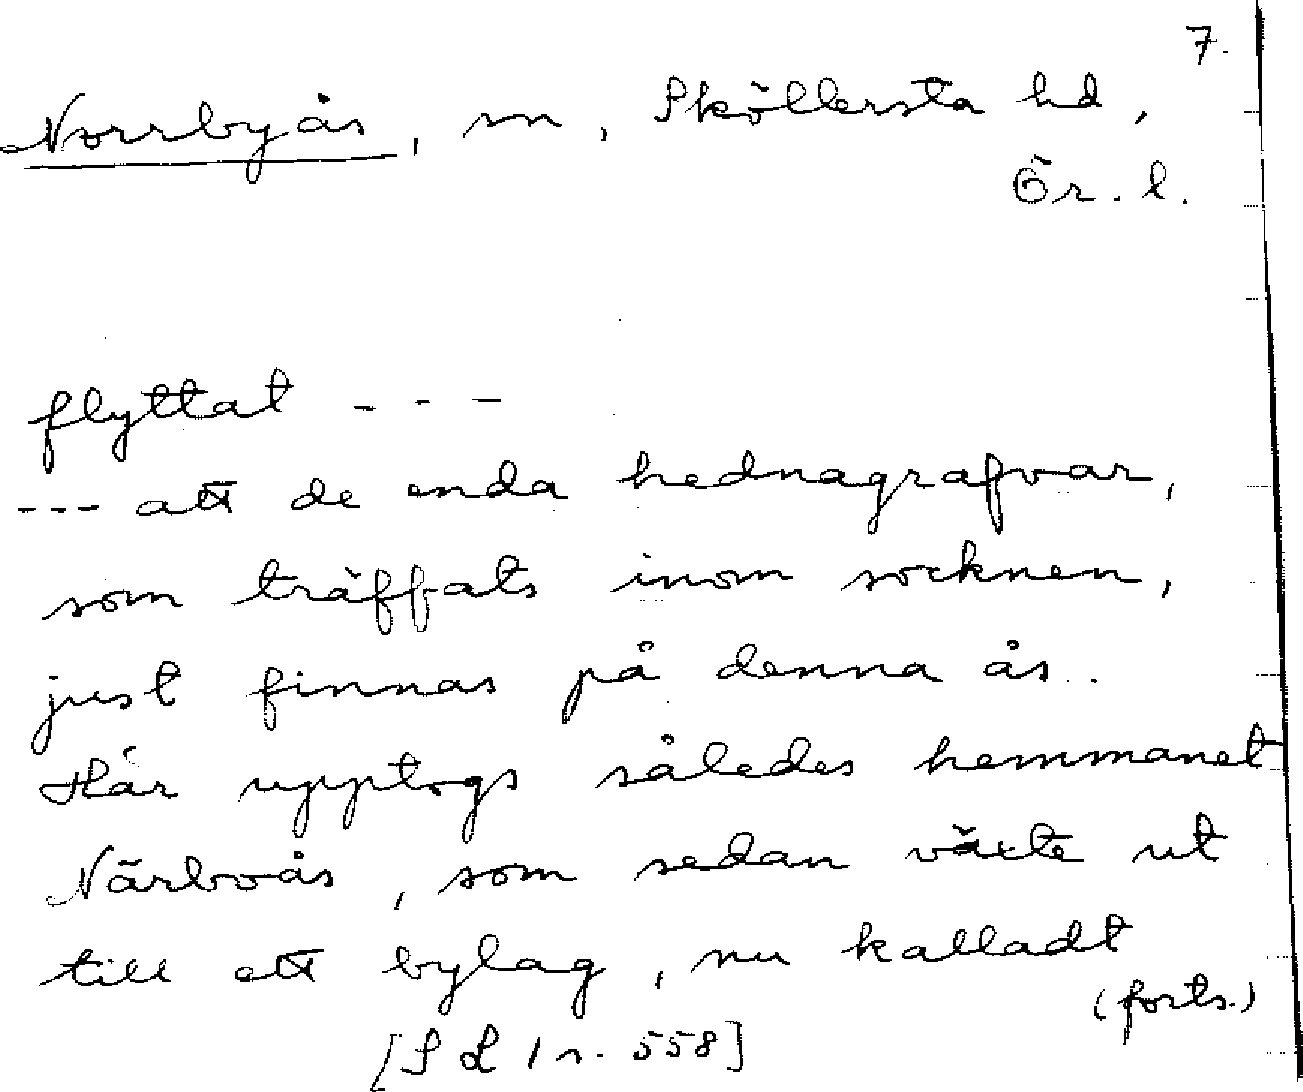 7.
Norrbyås, sn, Sköllersta hd,
Ör. l.
flyttat - - -
--- att de enda hednagrafvar,
som träffats inom socknen,
just finnas på denna ås.
Här upptogs således hemmanet
Närboås, som sedan växte ut
till ett bylag, nu kalladt
(forts.)
[S L 1 s. 558]